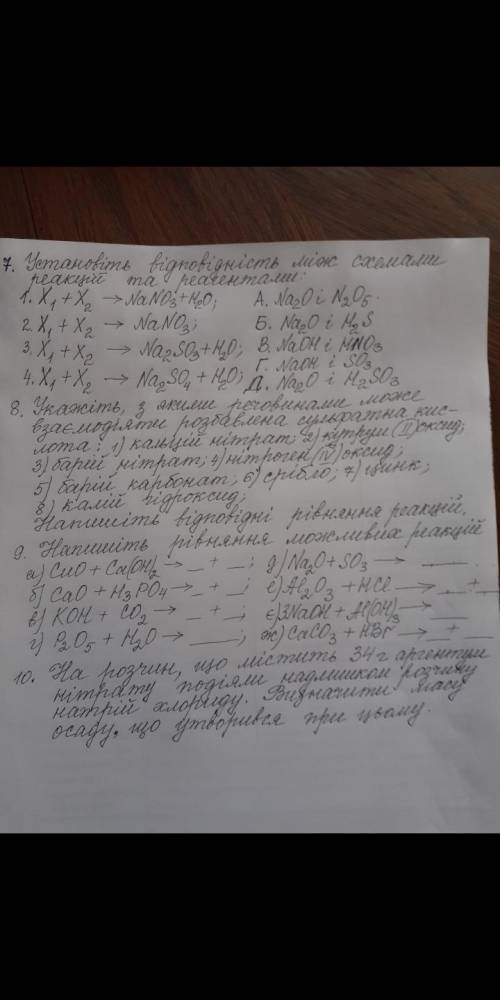 7. Установіть відповідність між схемами
реакцій та реагентами:
1. X₁ + X₂ → NaNO₃ + H₂O; А. Na₂O і N₂O₅.
2. X₁ + X₂ → NaNO₃; Б. Na₂O і H₂S
3. X₁ + X₂ → Na₂SO₃ + H₂O; В. NaOH і HNO₃
4. X₁ + X₂ → Na₂SO₄ + H₂O; Г. NaOH і SO₃
Д. Na₂O і H₂SO₃
8. Укажіть, з якими речовинами може
взаємодіяти розбавлена сульфатна кис-
лота: 1) кальцій нітрат; 2) купрум (II) оксид;
3) барій нітрат; 4) нітроген (IV) оксид;
5) барій карбонат; 6) срібло; 7) цинк;
8) калій гідроксид;
Напишіть відповідні рівняння реакцій.
9. Напишіть рівняння можливих реакцій
а) CuO + Ca(OH)₂ → _ + _; д) Na₂O + SO₃ → ___
б) CaO + H₃PO₄ → _ + _; е) Al₂O₃ + HCl → _ + _
в) KOH + CO₂ → _ + _; є) 3NaOH + Al(OH)₃ → ___
г) P₂O₅ + H₂O → ___; ж) CaCO₃ + HBr → _ + _
10. На розчин, що містить 34 г аргентум
нітрату подіяли надлишком розчину
натрій хлориду. Визначити масу
осаду, що утворився при цьому.